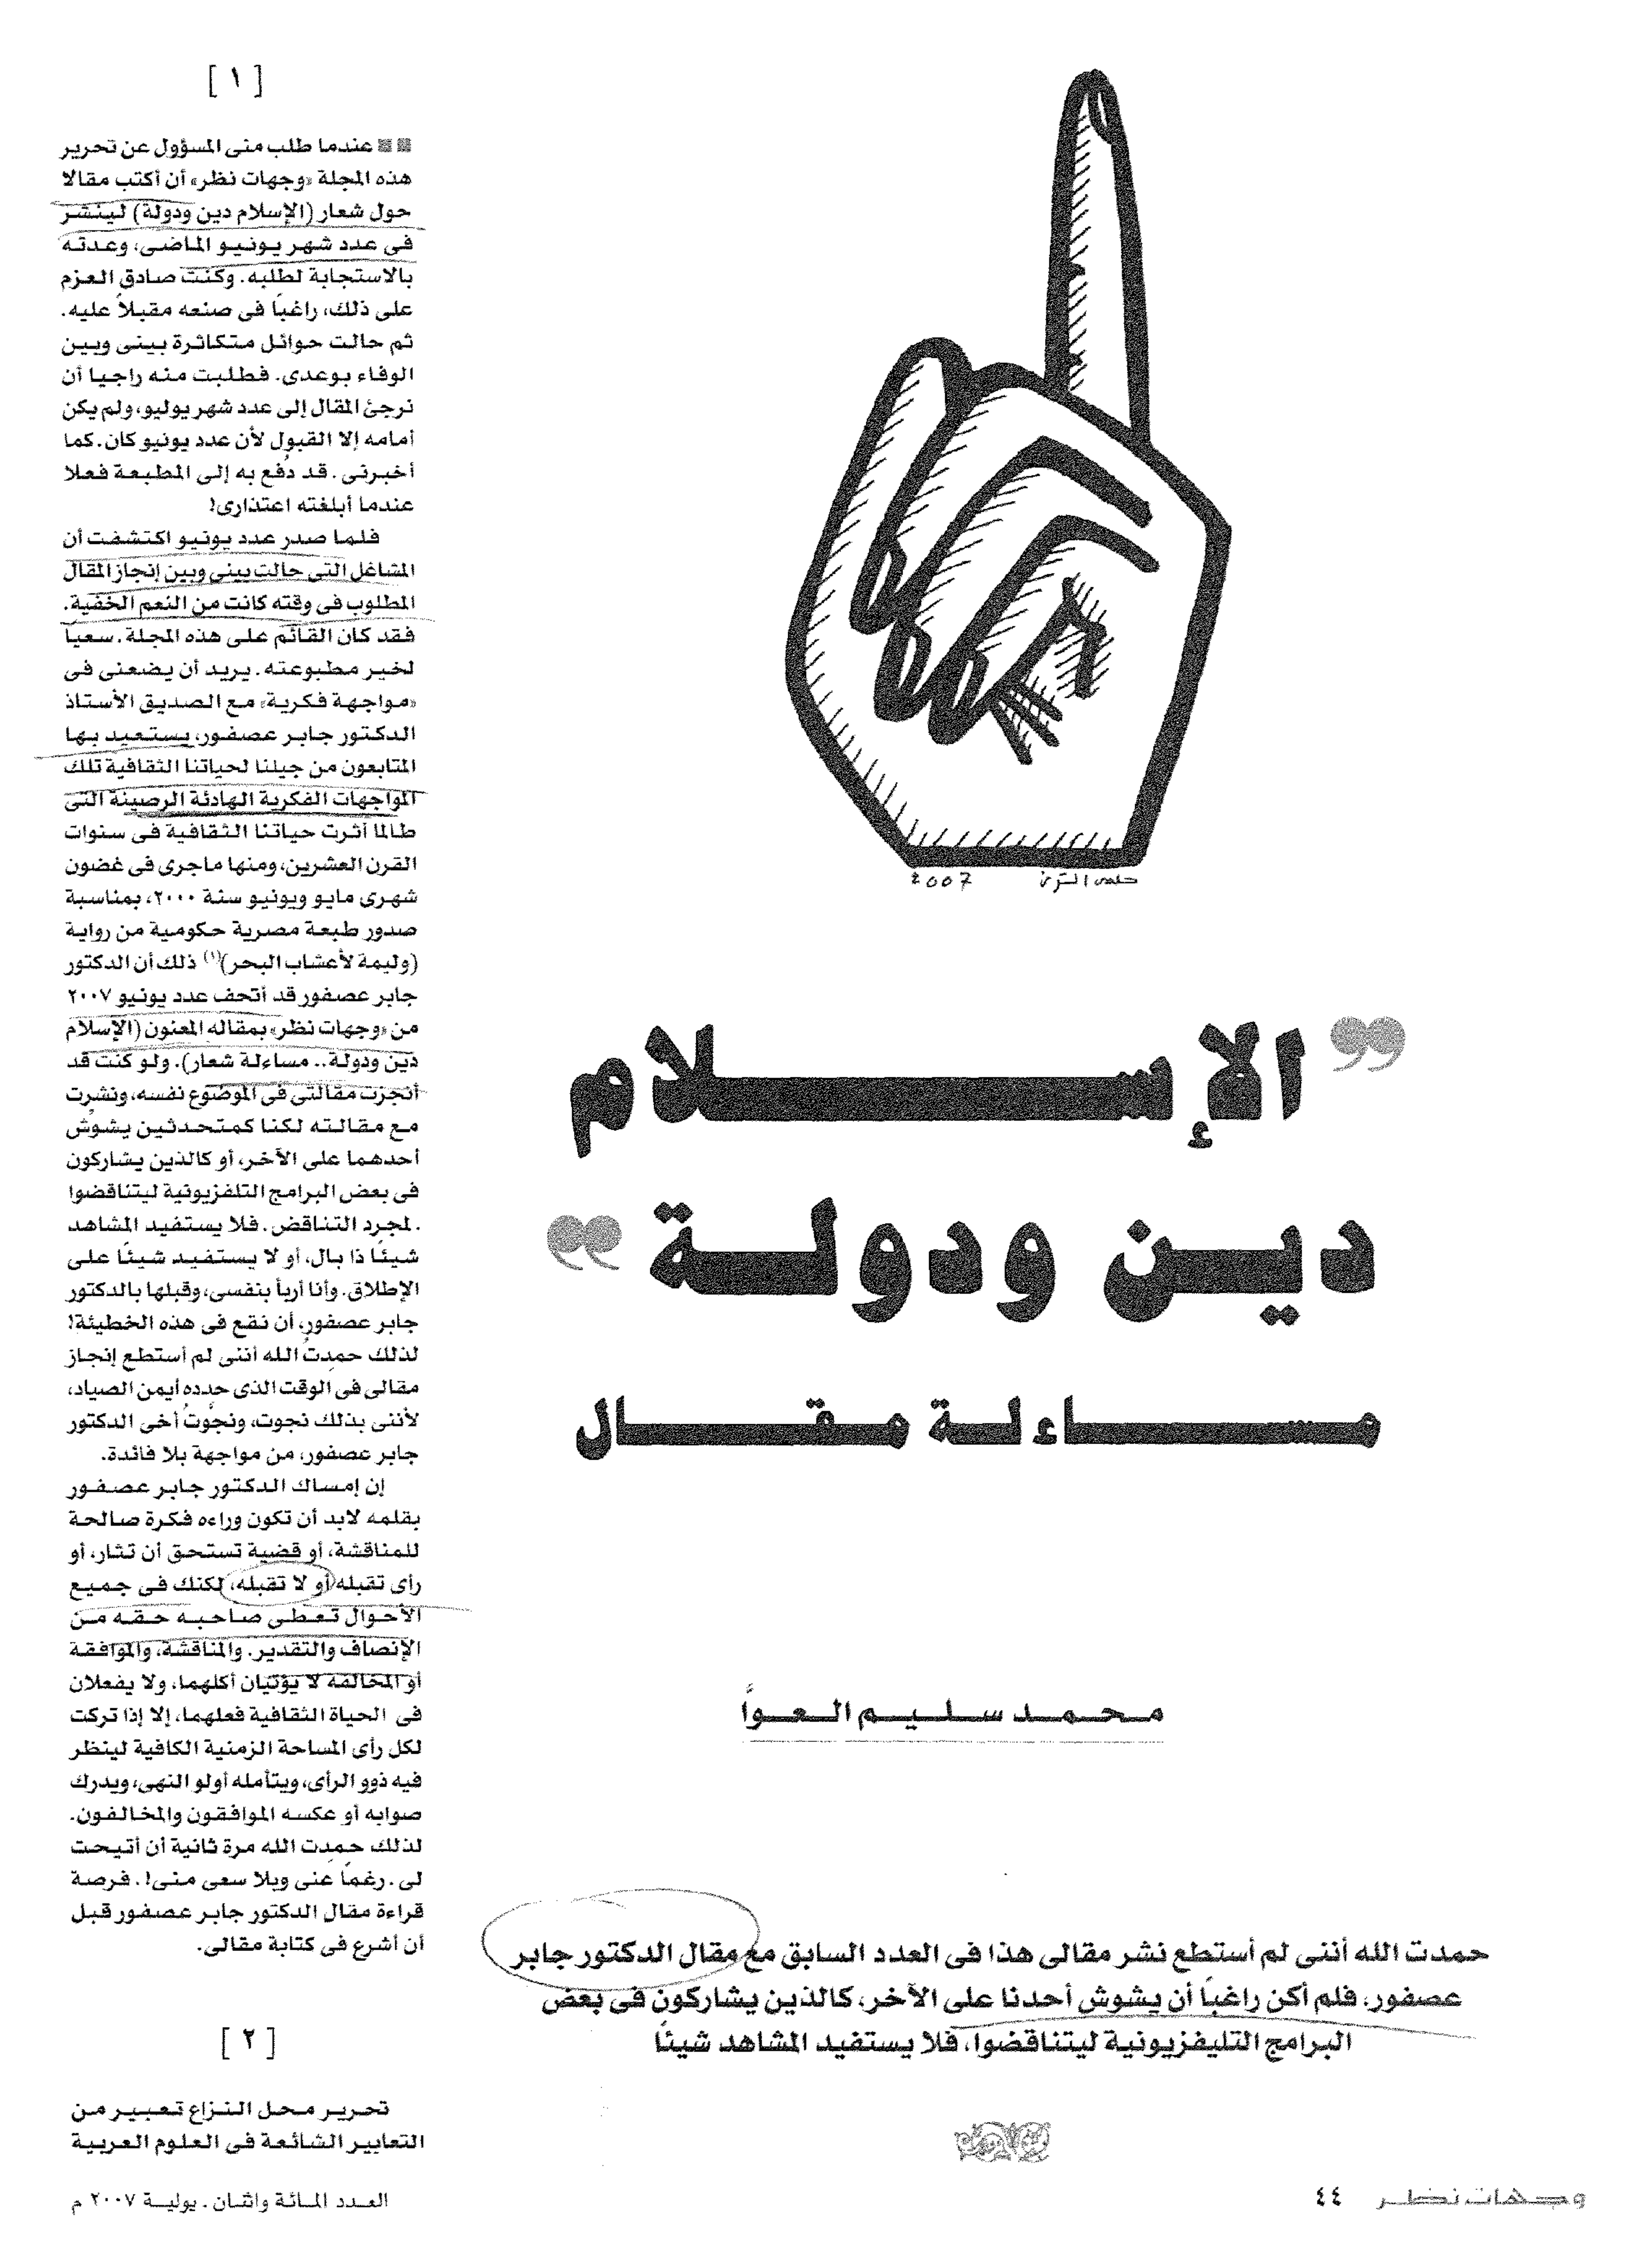 حلمى التونى 2007
”الإسلام
دين ودولة“
مساءلة مقال
محمد سليم العوا
حمدت الله أننى لم أستطع نشر مقالى هذا فى العدد السابق مع مقال الدكتور جابر
عصفور، فلم أكن راغباً أن يشوش أحدنا على الآخر، كالذين يشاركون فى بعض
البرامج التليفزيونية ليتناقضوا، فلا يستفيد المشاهد شيئاً
[ ١ ]
عندما طلب منى المسؤول عن تحرير
هذه المجلة «وجهات نظر» أن أكتب مقالا
حول شعار (الإسلام دين ودولة) لينشر
فى عدد شهر يونيو الماضى، وعدته
بالاستجابة لطلبه. وكنت صادق العزم
على ذلك، راغباً فى صنعه مقبلاً عليه.
ثم حالت حوائل متكاثرة بينى وبين
الوفاء بوعدى. فطلبت منه راجيا أن
نرجئ المقال إلى عدد شهر يوليو، ولم يكن
أمامه إلا القبول لأن عدد يونيو كان. كما
أخبرنى. قد دُفع به إلى المطبعة فعلا
عندما أبلغته اعتذارى!
فلما صدر عدد يونيو اكتشفت أن
المشاغل التى حالت بينى وبين إنجاز المقال
المطلوب فى وقته كانت من النعم الخفية.
فقد كان القائم على هذه المجلة. سعياً
لخير مطبوعته. يريد أن يضعنى فى
«مواجهة فكرية» مع الصديق الأستاذ
الدكتور جابر عصفور، يستعيد بها
المتابعون من جيلنا لحياتنا الثقافية تلك
المواجهات الفكرية الهادئة الرصينة التى
طالما أثرت حياتنا الثقافية فى سنوات
القرن العشرين، ومنها ماجرى فى غضون
شهرى مايو ويونيو سنة ٢٠٠٠، بمناسبة
صدور طبعة مصرية حكومية من رواية
(وليمة لأعشاب البحر)(١) ذلك أن الدكتور
جابر عصفور قد أتحف عدد يونيو ٢٠٠٧
من «وجهات نظر» بمقاله المعنون (الإسلام
دين ودولة.. مساءلة شعار). ولو كنت قد
أنجزت مقالتى فى الموضوع نفسه، ونشرت
مع مقالته لكنا كمتحدثين يشوش
أحدهما على الآخر، أو كالذين يشاركون
فى بعض البرامج التلفزيونية ليتناقضوا
. لمجرد التناقض. فلا يستفيد المشاهد
شيئًا ذا بال، أو لا يستفيد شيئًا على
الإطلاق. وأنا أربأ بنفسى، وقبلها بالدكتور
جابر عصفور، أن نقع فى هذه الخطيئة!
لذلك حمدتُ الله أننى لم أستطع إنجاز
مقالى فى الوقت الذى حدده أيمن الصياد،
لأننى بذلك نجوت، ونجّوتُ أخى الدكتور
جابر عصفور، من مواجهة بلا فائدة.
إن إمساك الدكتور جابر عصفور
بقلمه لابد أن تكون وراءه فكرة صالحة
للمناقشة، أو قضية تستحق أن تثار، أو
رأى تقبله أو لا تقبله، لكنك فى جميع
الأحوال تعطى صاحبه حقه من
الإنصاف والتقدير. والمناقشة، والموافقة
أو المخالفة لا يؤتيان أكلهما، ولا يفعلان
فى الحياة الثقافية فعلهما، إلا إذا تركت
لكل رأى المساحة الزمنية الكافية لينظر
فيه ذوو الرأى، ويتأمله أولو النهى، ويدرك
صوابه أو عكسه الموافقون والمخالفون.
لذلك حمدت الله مرة ثانية أن أتيحت
لى. رغماً عنى وبلا سعى منى!. فرصة
قراءة مقال الدكتور جابر عصفور قبل
أن أشرع فى كتابة مقالى.
[ ٢ ]
تحرير محل النزاع تعبير من
التعابير الشائعة فى العلوم العربية
وجهات نظر ٤٤
العدد المائة واثنان. يولية ٢٠٠٧ م